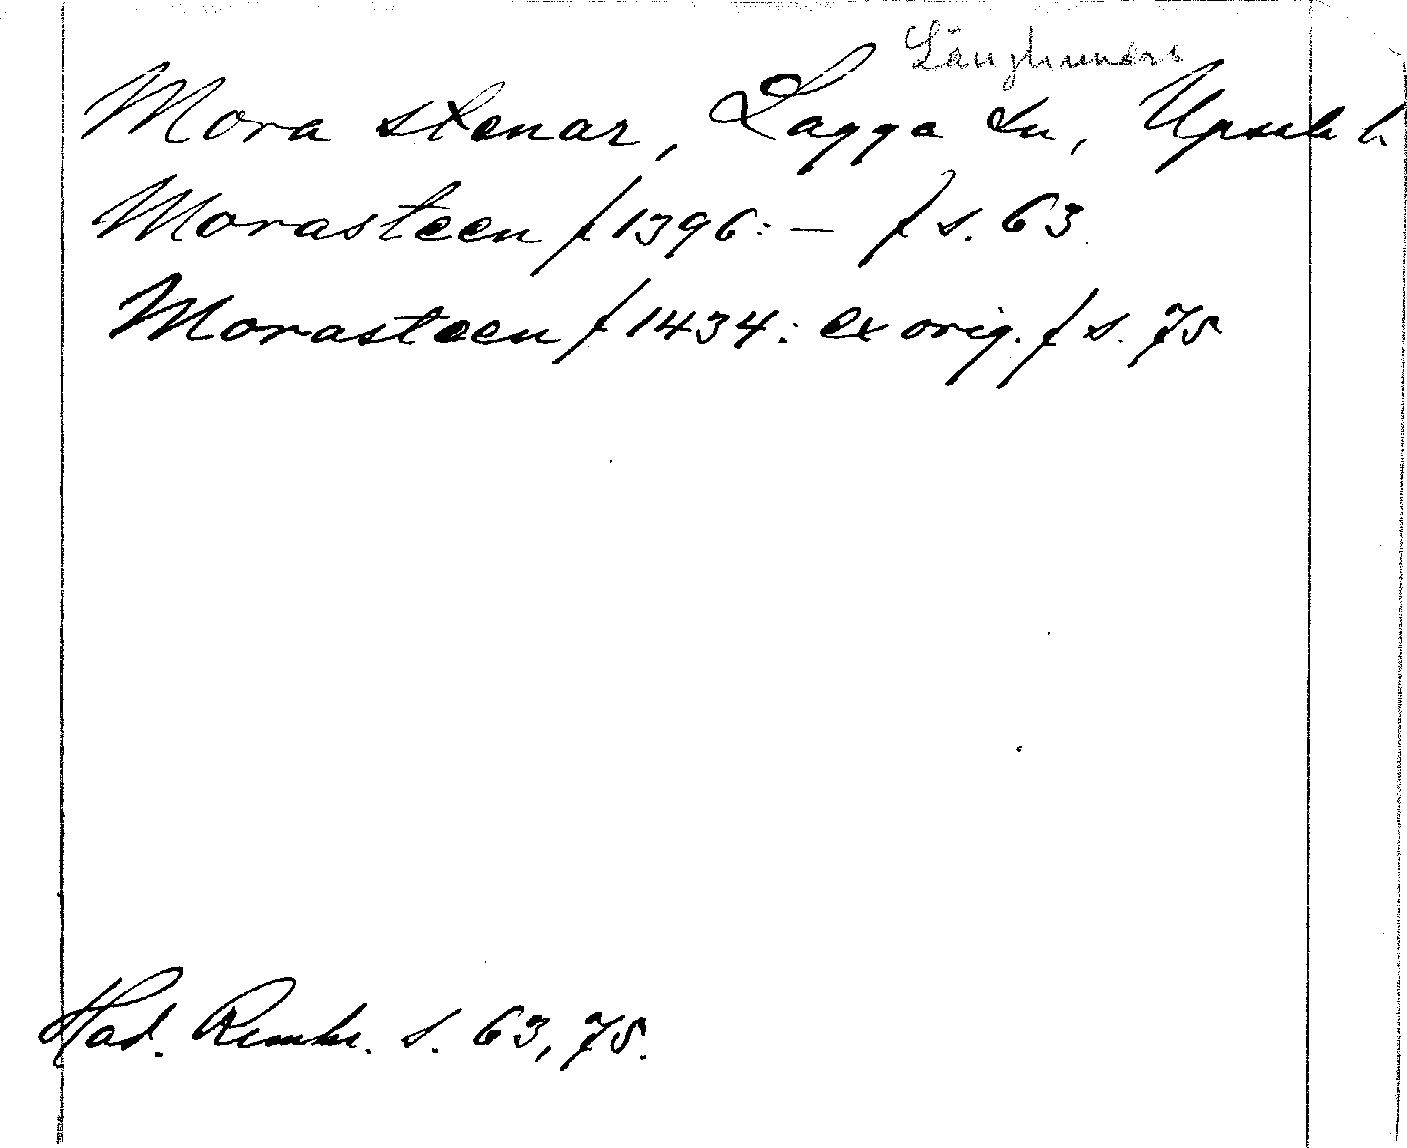 Långhundra
Mora stenar, Lagga sn, Upsala l.
Morasteen / 1396: – / s. 63
Morasteen / 1434: ex orig. / s. 75
Had. s. 63, 75.